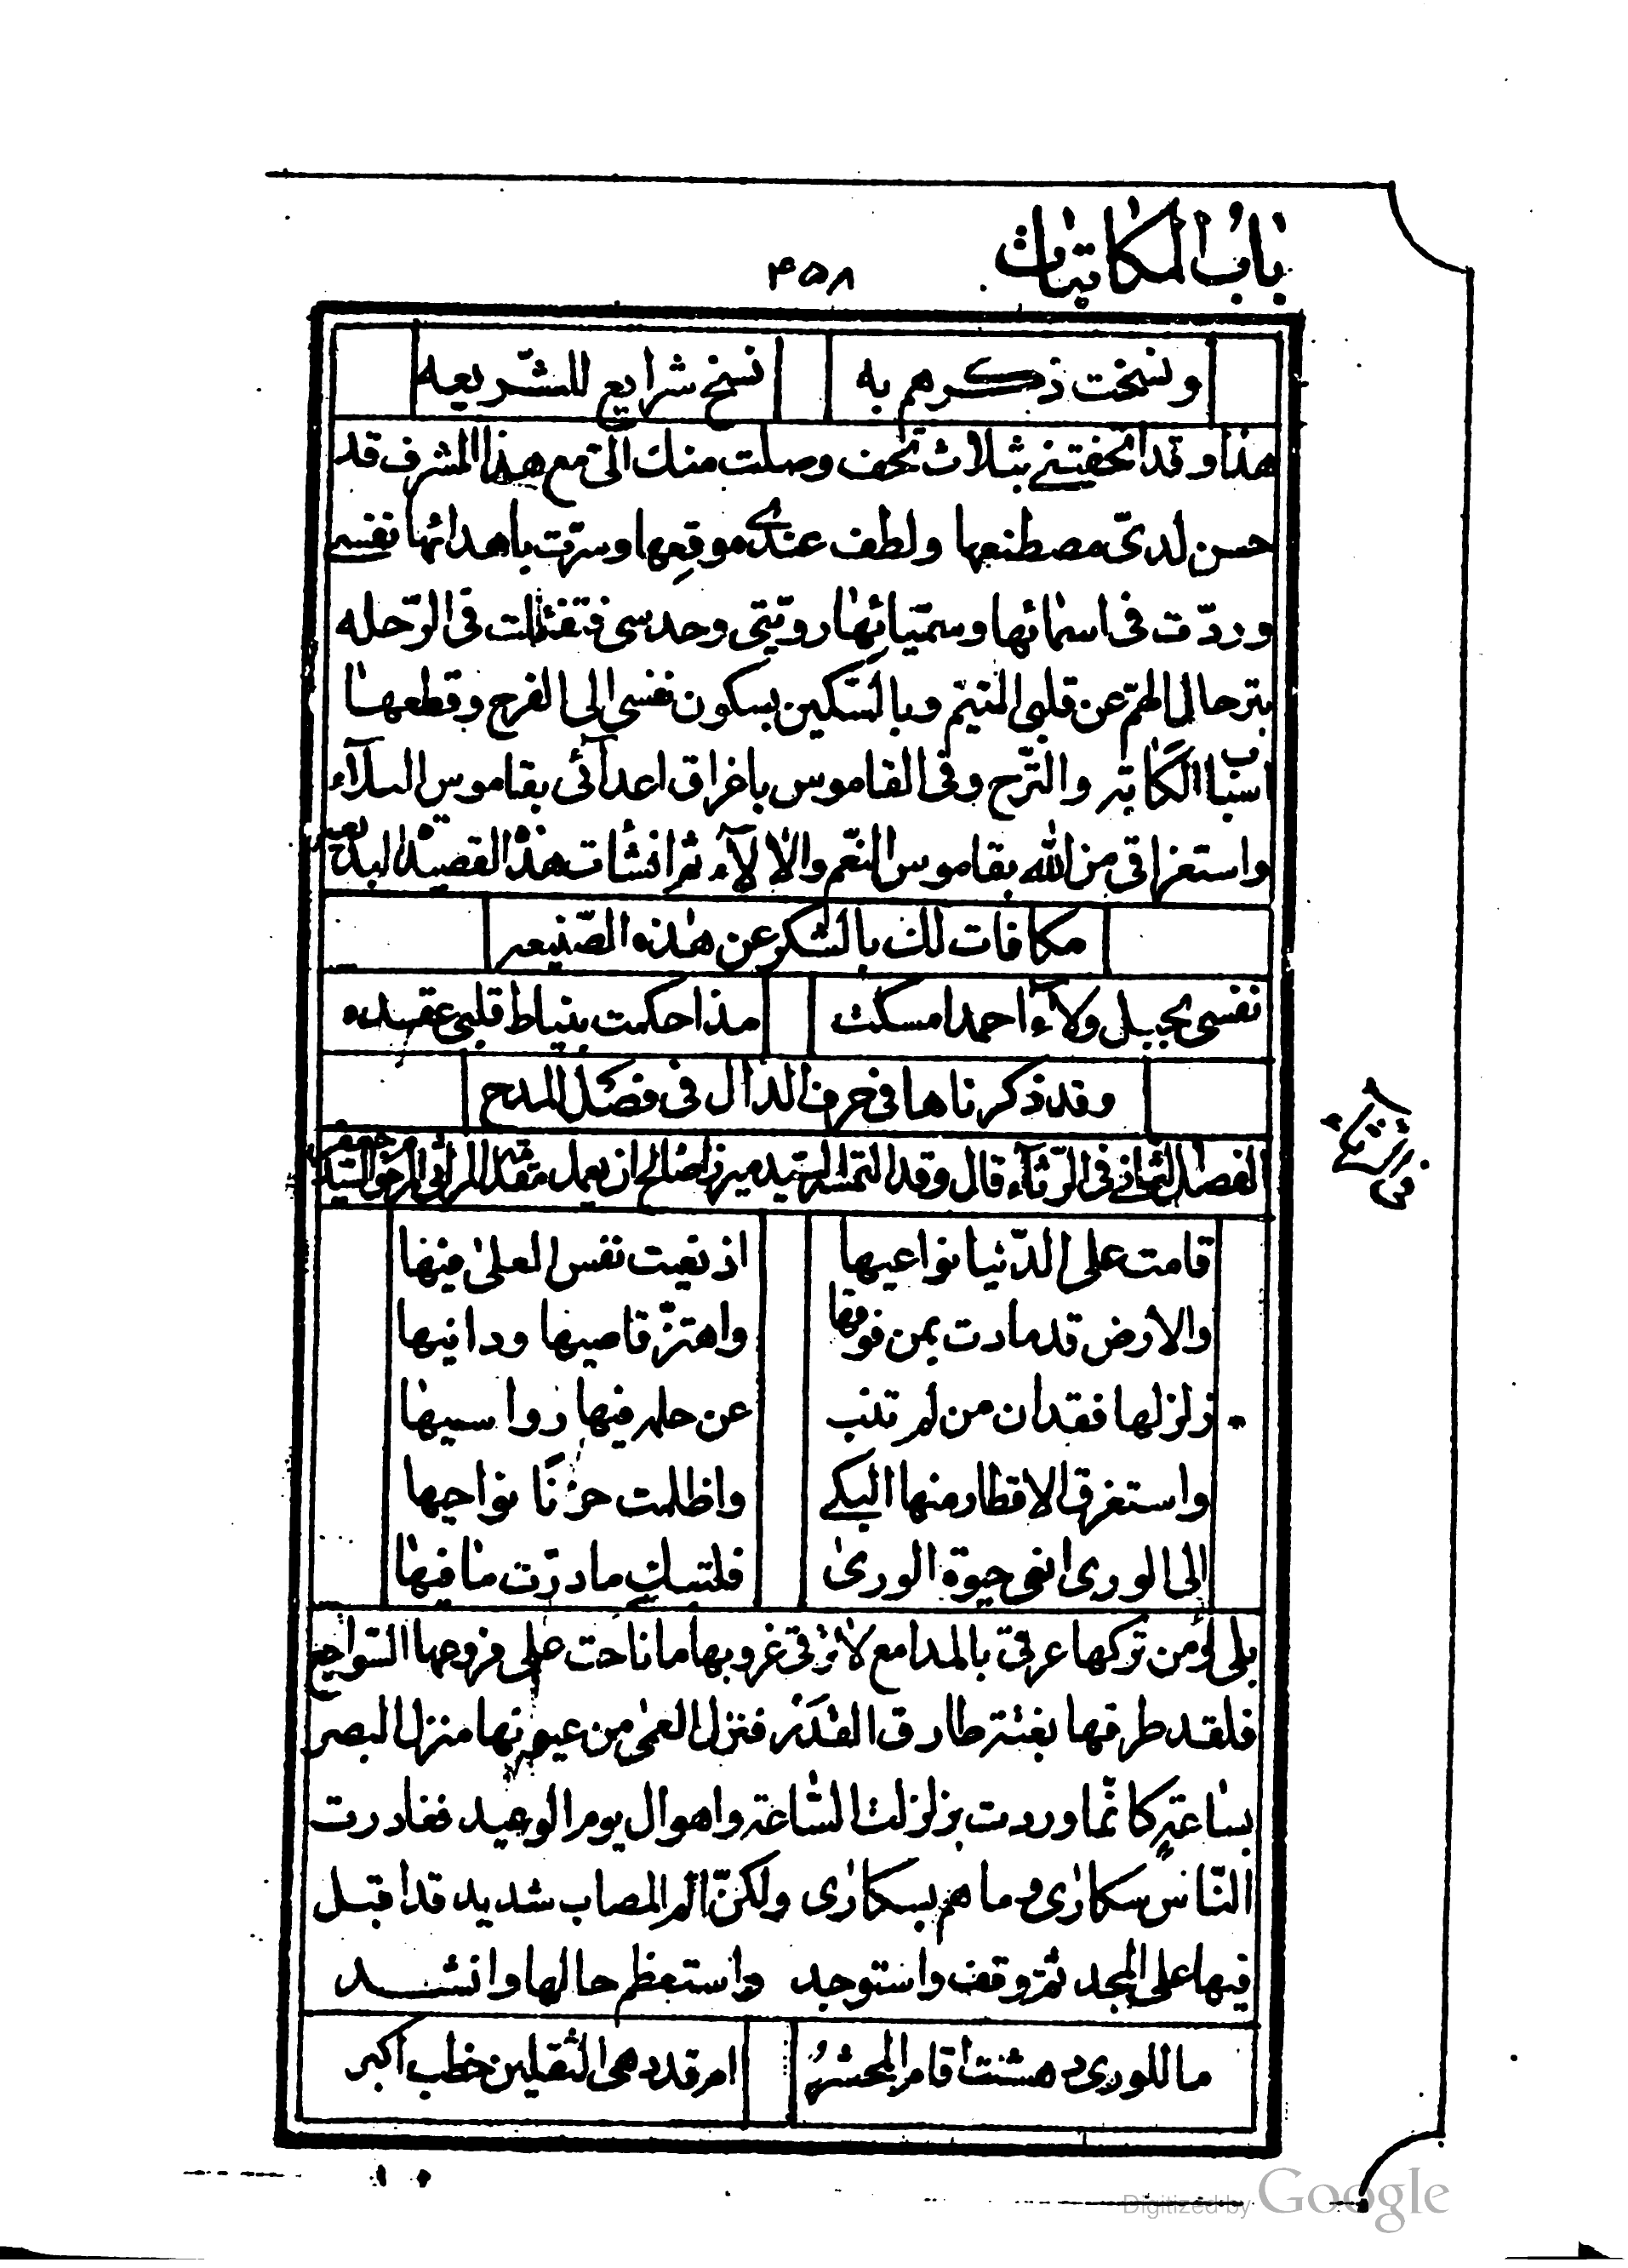 باب المكاتبات
۴۵۸
ونسخت ذكرهم به نسخ شرايع للشريعه
هذا وقد اتحفتني بثلاث تحف وصلت منك الىّ مع هذا المشرف قد
حسن لدىّ مصطنعها ولطف عندى موقعها وسرّت باهدائها نفسى
وردّت فى اسمائها وسمّياتها رويّتى وحدسى فتفئلت فى الرّحله
بترحال الهمّ عن قلبى المتيّم وبالسّكين بسكون نفسى الى الفرج وقطعها
اسباب الكابة والتّرح وفى القاموس باغراق اعدآئى بقاموس البلآء
واستغراقى من الله بقاموس النّعم والالآء ثم انشات هذه القصيدة البديعه
مكافات لك بالشكر عن هذه الصّنيعه
نفسى بحبل ولآء احمد امسكت مذ احكمت بنياط قلبى عقده
وقد ذكرناها فى حرف الدال فى فصل المدح
الفصل الثانى فى الرّثآء قال وقد التمسه السيد ميرزا صالح ان يعمل مقدّمة لمراثى المرحوم السيد ميرزا جعفر
فى الرثاء
قامت على الدّنيا نواعيها اذ نعيت نفس العلى فيها
والارض قد مادت بمن فوقها واهتزّ قاصيها ودانيها
زلزلها فقدان من لم تذب عن حلمه فيها رواسيها
واستغرق الاقطار منها البكى واظلمت حزنًا نواحيها
الى الورى انعى حيوة الورى فلتبك ما درّت مافيها
بلى لؤمن تركها عرقى بالمدامع لا ترقى غروبها ما ناحت على فروعها السّواجع
فلقد طرقها بغتة طارق القدر فنزل العمى من عيونها منزل البصر
بساعةٍ كانّما وردت بزلزلت الساعة واهوال يوم الوعيد فغادرت
النّاس سكارى وما هم بسكارى ولكنّ الم المصاب شديد قد اقبل
فيها على المجد ثمّ وقف واستوجد واستعظم حالها وانشد
ما للورى دهشت اقام المحشرُ ام قد دهى الثقلين خطب اكبر
Digitized by Google